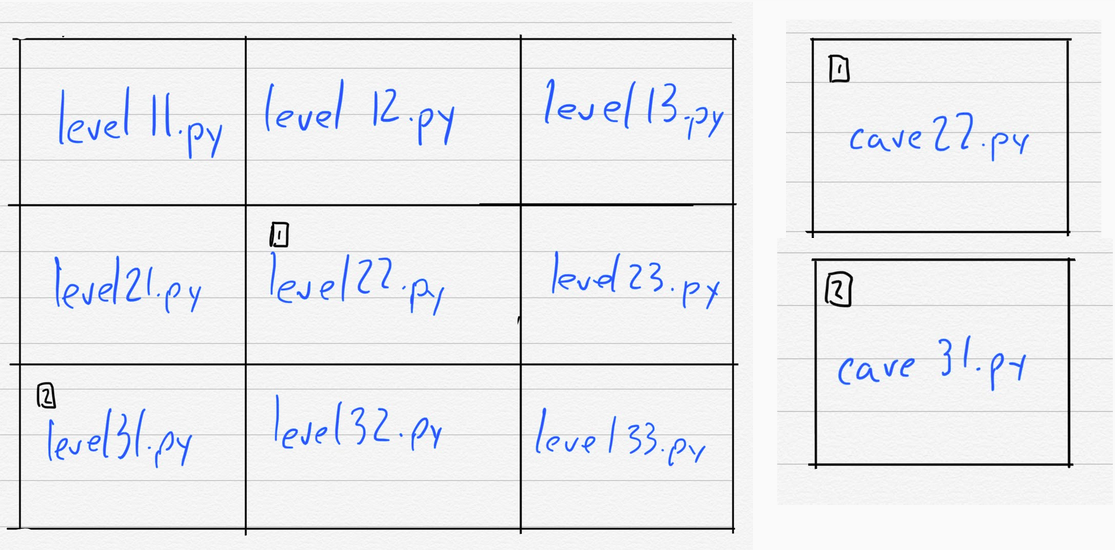 level 11.py
level 12.py
level 13.py
level 21.py
1
level 22.py
level 23.py
2
level 31.py
level 32.py
level 33.py
1
cave 22.py
2
cave 31.py